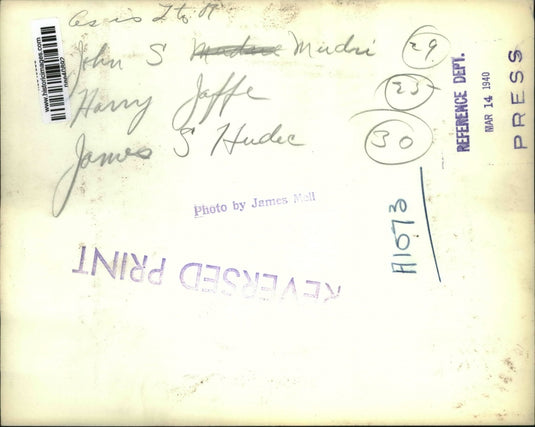 As is L to R
John S Mudri 29
Harry Jaffe 25
James S Hudec 30
www.historicimages.com
REFERENCE DEPT.
MAR 14 1940
PRESS
Photo by James Mell
A1073
REVERSED PRINT